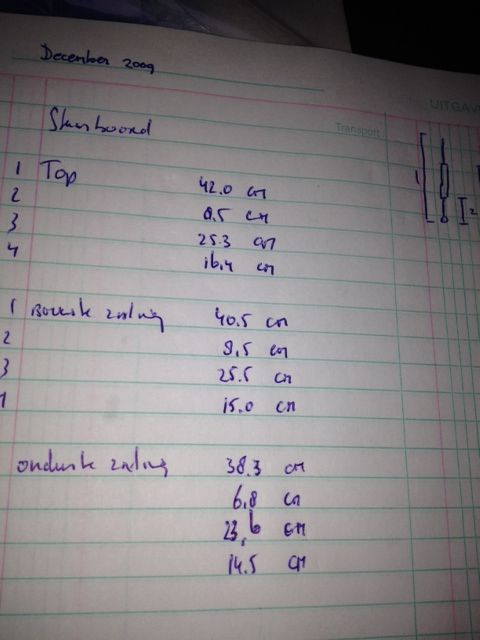 December 2009
UITGAV
Transport
Stuurboord
1 Top 42.0 cm
2 8.5 cm
3 25.3 cm
4 16.4 cm
1 Bovenste zaling 40.5 cm
2 9,5 cm
3 25.5 cm
15.0 cm
onderste zaling 38.3 cm
6,8 cm
23,6 cm
14.5 cm
1
2